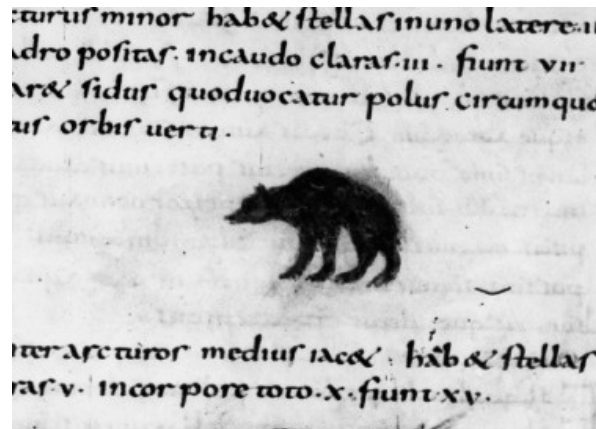 cturus minor hab& stellas in uno latere. ii
adro positas. in caudo claras. iii. fiunt vii
ar& sidus quod uocatur polus circum quē
tus orbis uerti.
nter arcturos medius iac&. hab& stellas
ras v. in corpore toto. x. fiunt xv.